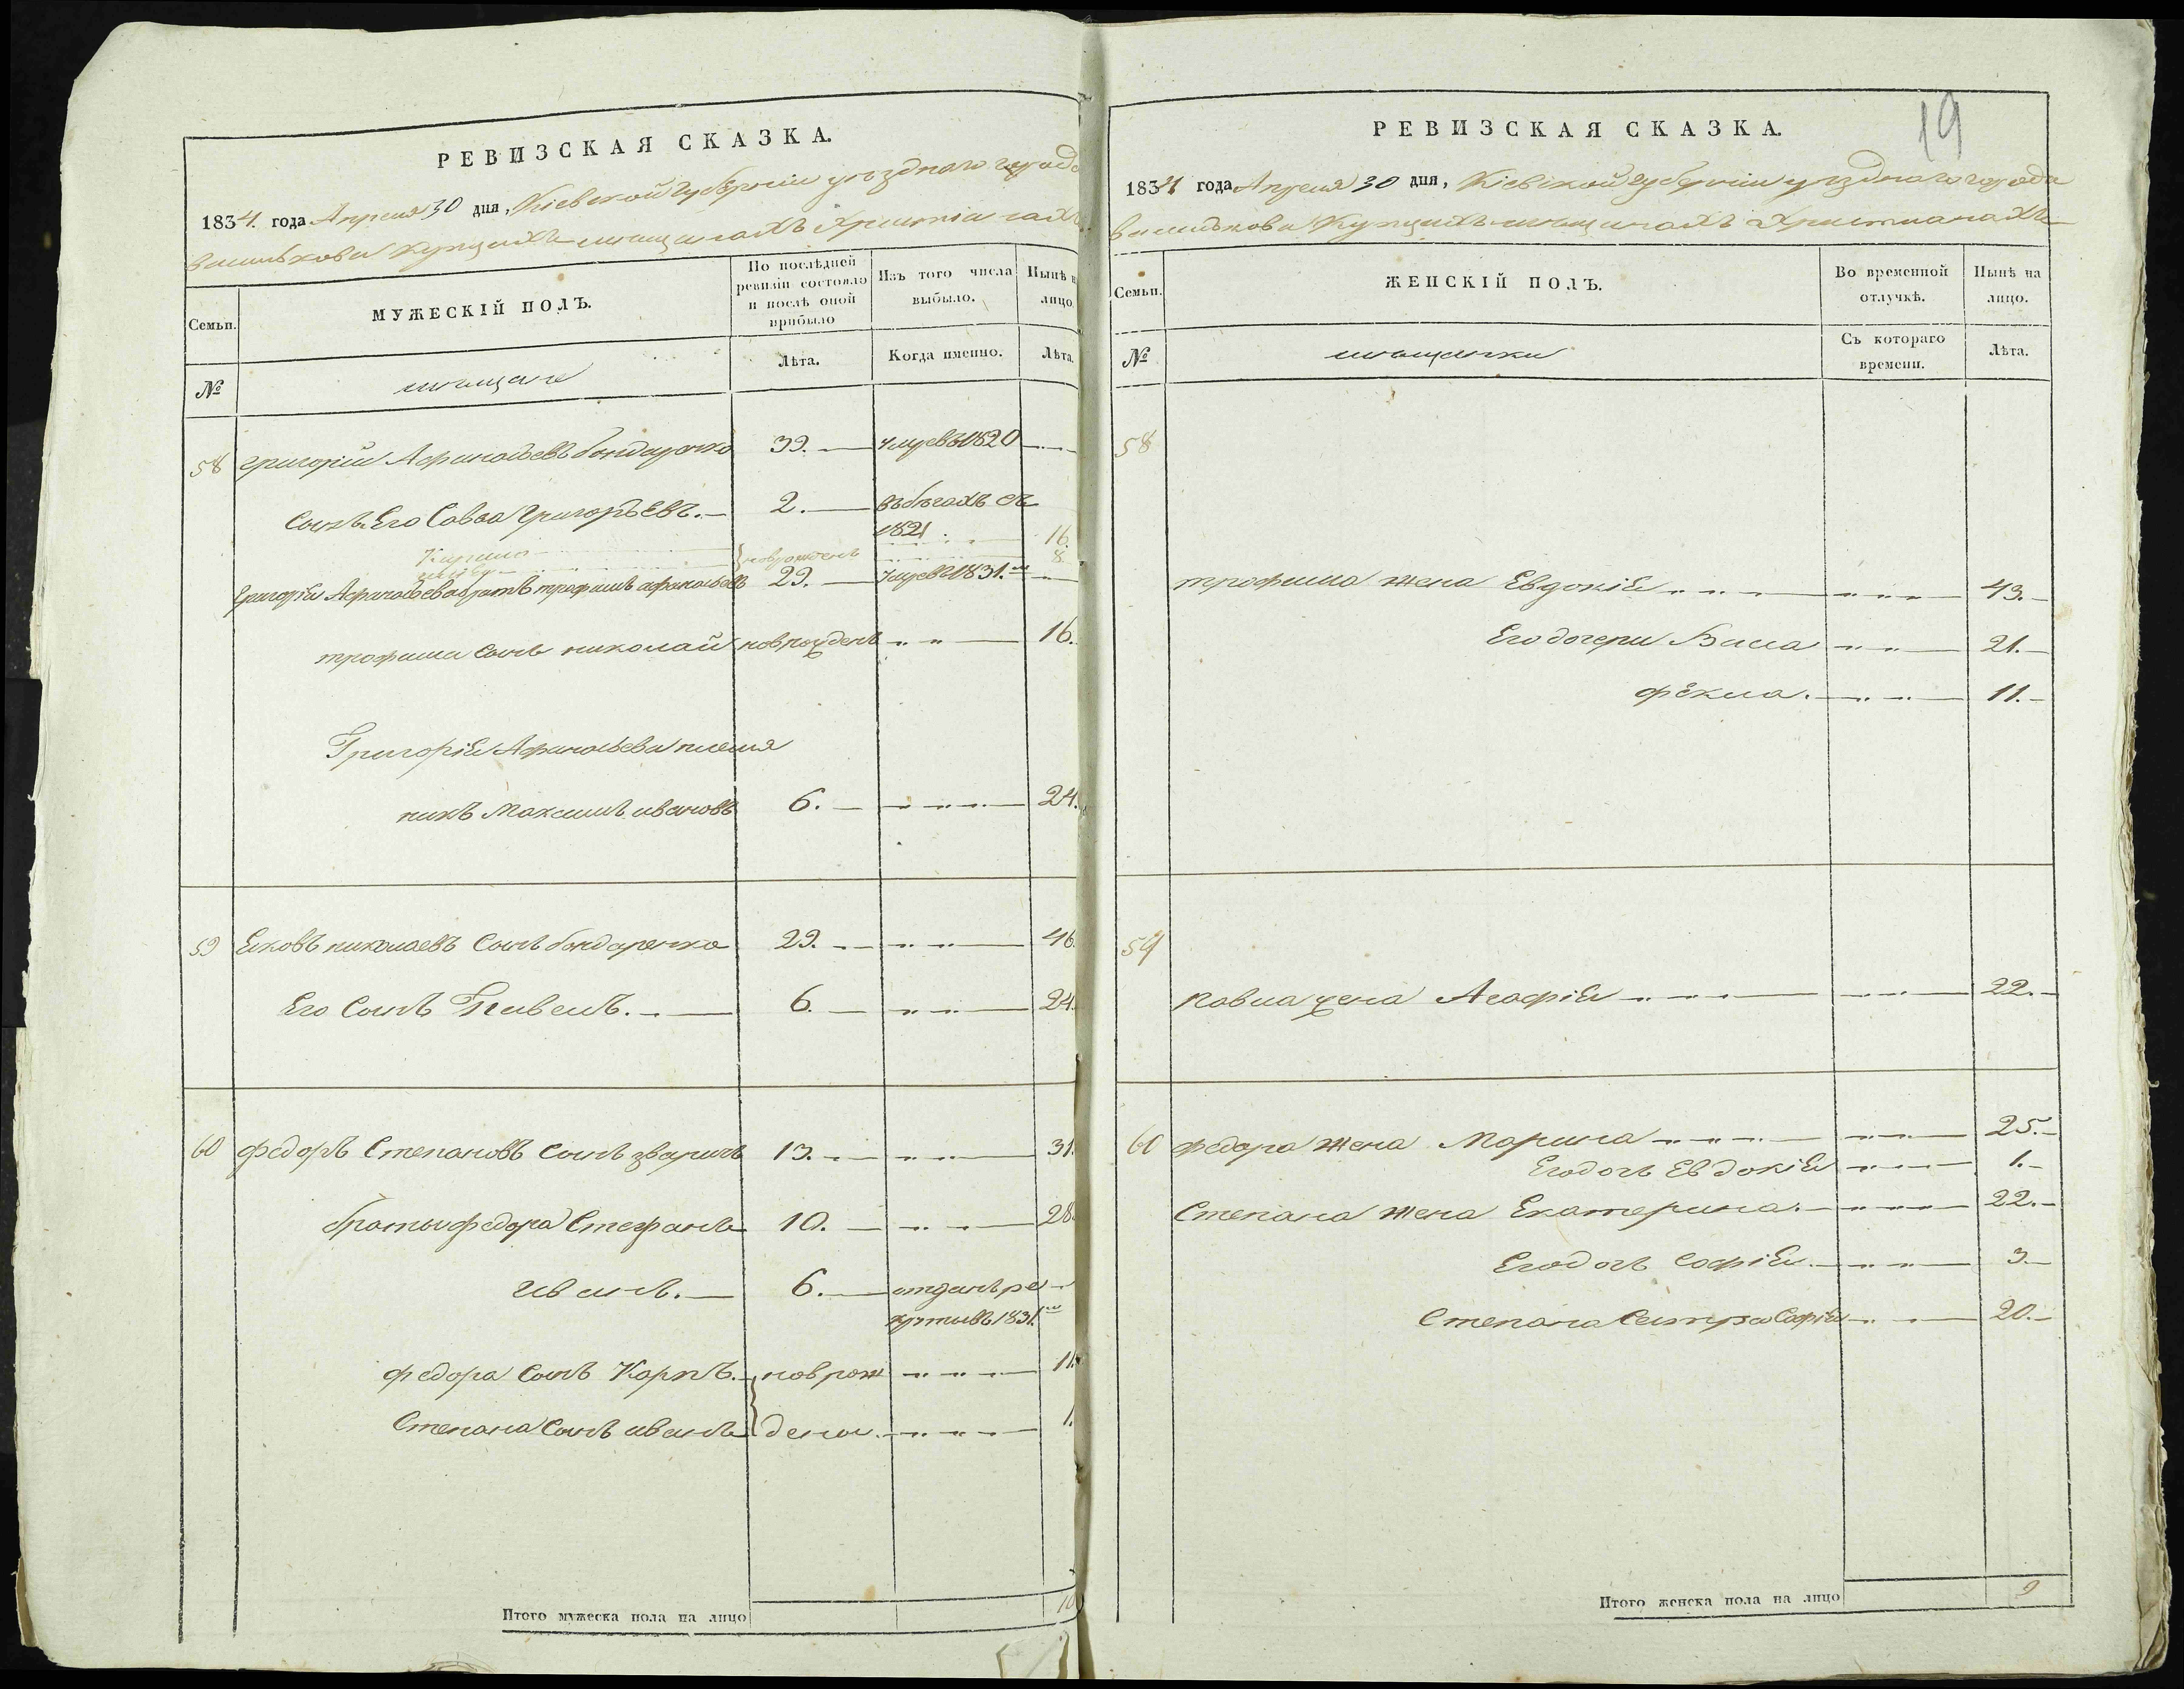 РЕВИЗСКАЯ СКАЗКА.
1834. года Апреля 30 дня, Кіевской губерніи уѣзднаго города
Василькова Купцахъ мѣщанахъ Христіанахъ
Семьи.
МУЖЕСКІЙ ПОЛЪ.
По послѣдней ревизіи состояло и послѣ оной прибыло
Изъ того числа выбыло.
Нынѣ на лицо.
№
мѣщане
Лѣта.
Когда именно.
Лѣта.
58 Григорій Афанасьевъ бондаренко 39. умре въ 1820
Сынъ Его Савва Григорьевъ. 2. въ бѣгахъ съ
1821
Кирило 16.
новрожден 8
Григорія Афанасьева братъ трофимъ афанасьевъ 29. умре въ 1831.
трофима Сынъ николай новрожденъ 16.
Григорія Афанасьева племя
никъ Максимъ ивановъ 6. 24.
59 Яковъ николаевъ Сынъ бондаренко 29. 46.
Его Сынъ Павелъ. 6. 24.
60 Федоръ Степановъ Сынъ зваричъ 13. 31.
браты федора Стефанъ 10. 28.
иванъ. 6. отданъ ре
круты въ 1831.
федора Сынъ Карпъ. новрож 11.
Степана Сынъ иванъ дены. 1.
Итого мужеска пола на лицо 10
19
РЕВИЗСКАЯ СКАЗКА.
1834 года Апреля 30 дня, Кіевской губерніи уѣзднаго города
Василькова Купцахъ мѣщанахъ Христианахъ
Семьи.
ЖЕНСКІЙ ПОЛЪ.
Во временной отлучкѣ.
Нынѣ на лицо.
№
мѣщанки
Съ котораго времени.
Лѣта.
58
трофима жена Евдокія 43.
Его дочери Васса 21.
фекла. 11.
59
Павла жена Агафія 22.
60 федора жена Марина 25.
Его дочь Евдокія 1.
Степана жена Екатерина. 22.
Его дочь Софія 3.
Степана Сестра Софія 20.
Итого женска пола на лицо 9